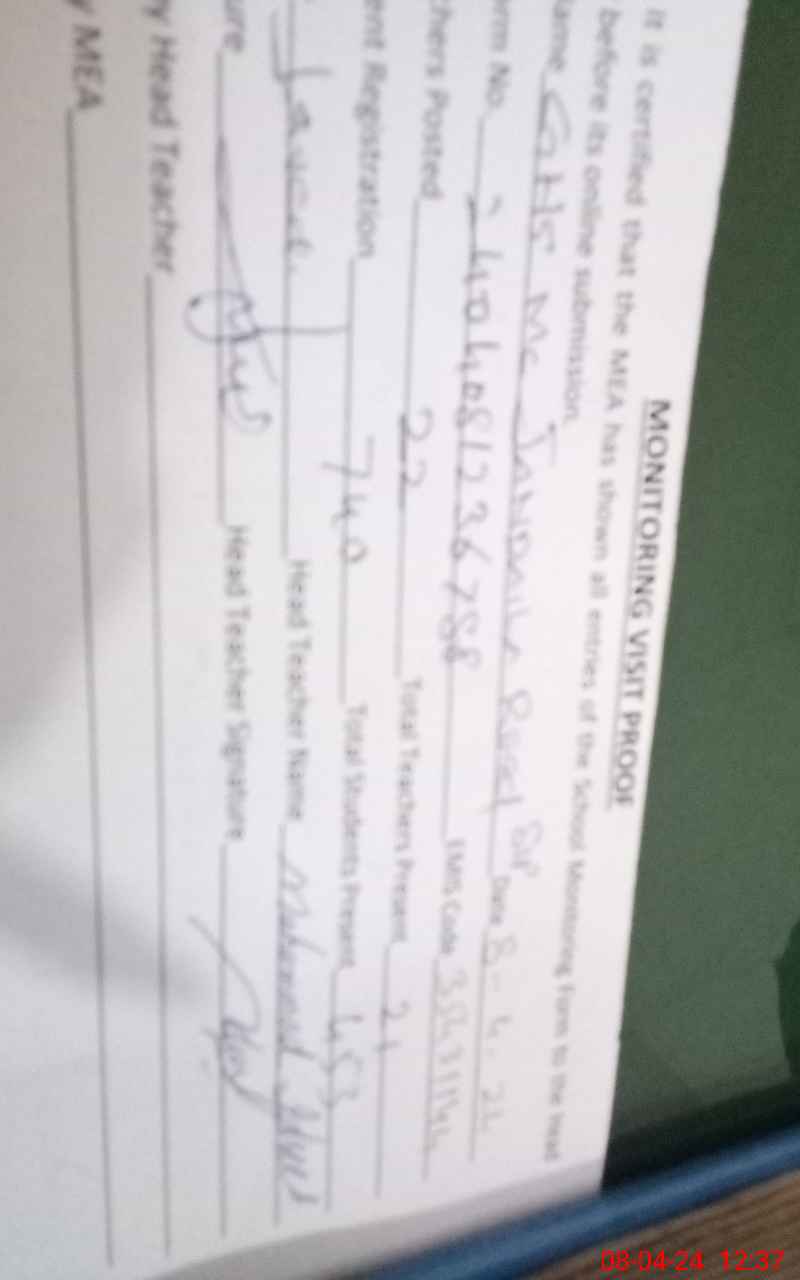 MONITORING VISIT PROOF
it is certified that the MEA has shown all entries of the School Monitoring Form to the head
before its online submission.
ame GHS MC Road Date 8-4-24
orm No. 2404081236788 EMIS Code
chers Posted 22 Total Teachers Present 21
ent Registration 740 Total Students Present 453
Javed Head Teacher Name Muhammad
ure Head Teacher Signature
y Head Teacher
y MEA
08-04-24 12:37